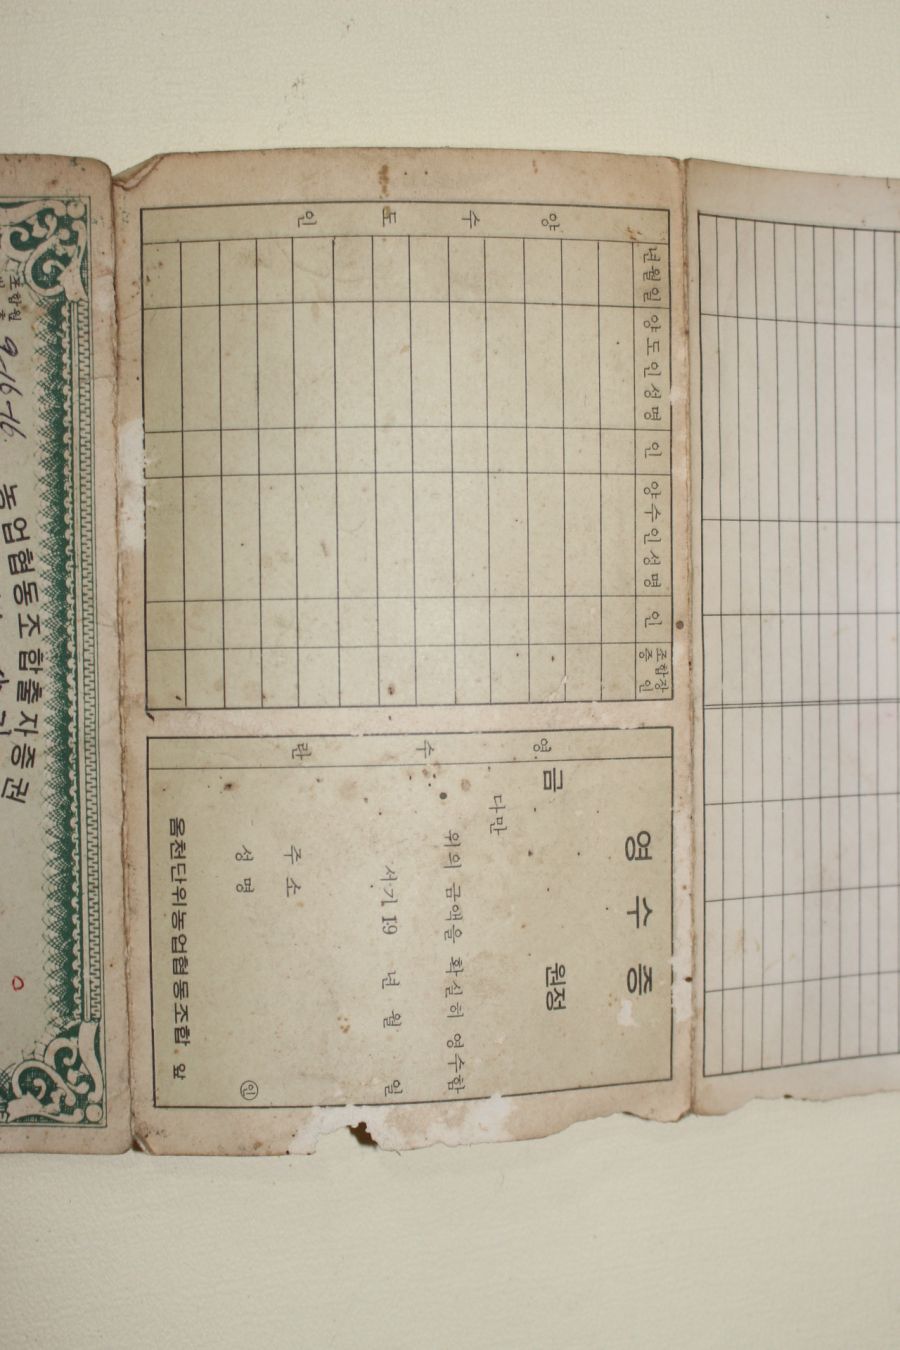 양수도인
년월일 양도인성명 인 양수인성명 인 조합장증인
영수란
영수증
금 원정
다만
위의 금액을 확실히 영수함
서기 19 년 월 일
주소
성명 ㊞
옴천단위농업협동조합 앞
농업협동조합출자증권
조합원
9-16-16